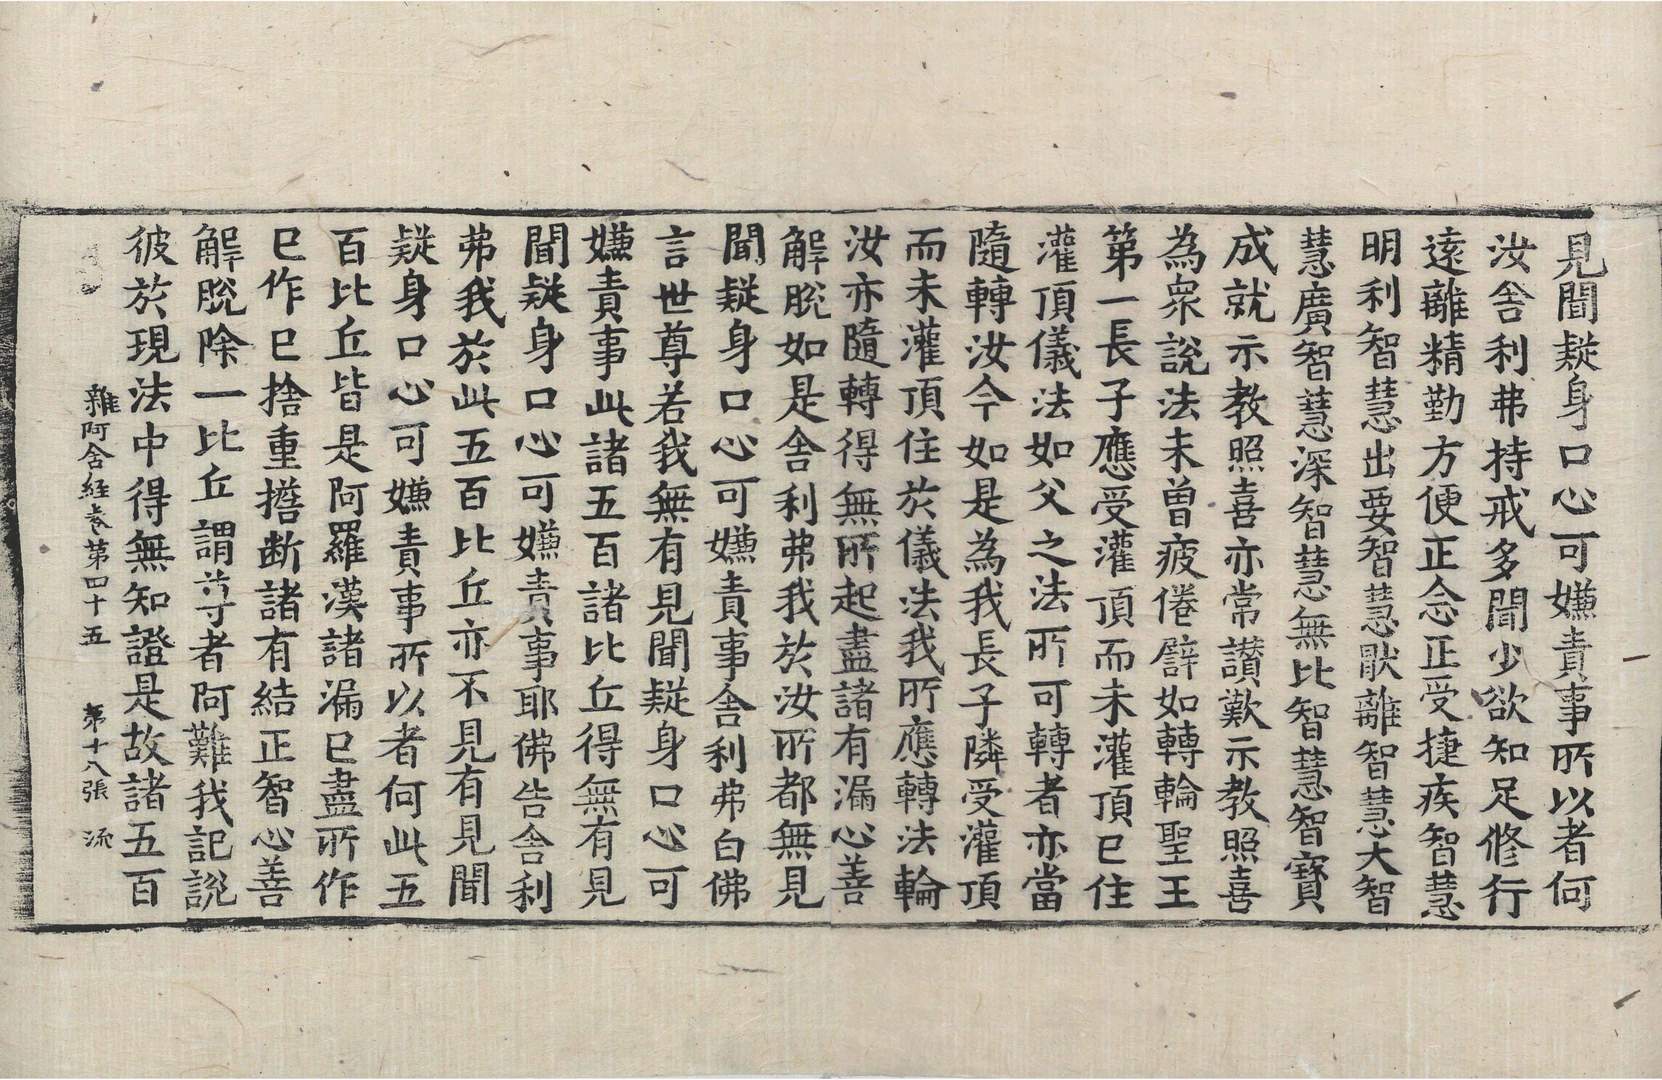 見聞疑身口心可嫌責事所以者何
汝舍利弗持戒多聞少欲知足修行
遠離精勤方便正念正受捷疾智慧
明利智慧出要智慧猒離智慧大智
慧廣智慧深智慧無比智慧智寶
成就示教照喜亦常讃歎示教照喜
為衆說法未曾疲倦譬如轉輪聖王
第一長子應受灌頂而未灌頂已住
灌頂儀法如父之法所可轉者亦當
隨轉汝今如是為我長子隣受灌頂
而未灌頂住於儀法我所應轉法輪
汝亦隨轉得無所起盡諸有漏心善
解脫如是舍利弗我於汝所都無見
聞疑身口心可嫌責事舍利弗白佛
言世尊若我無有見聞疑身口心可
嫌責事此諸五百諸比丘得無有見
聞疑身口心可嫌責事耶佛告舍利
弗我於此五百比丘亦不見有見聞
疑身口心可嫌責事所以者何此五
百比丘皆是阿羅漢諸漏已盡所作
已作已捨重擔断諸有結正智心善
解脫除一比丘謂尊者阿難我記說
彼於現法中得無知證是故諸五百
雜阿含経卷第四十五 第十八張 流